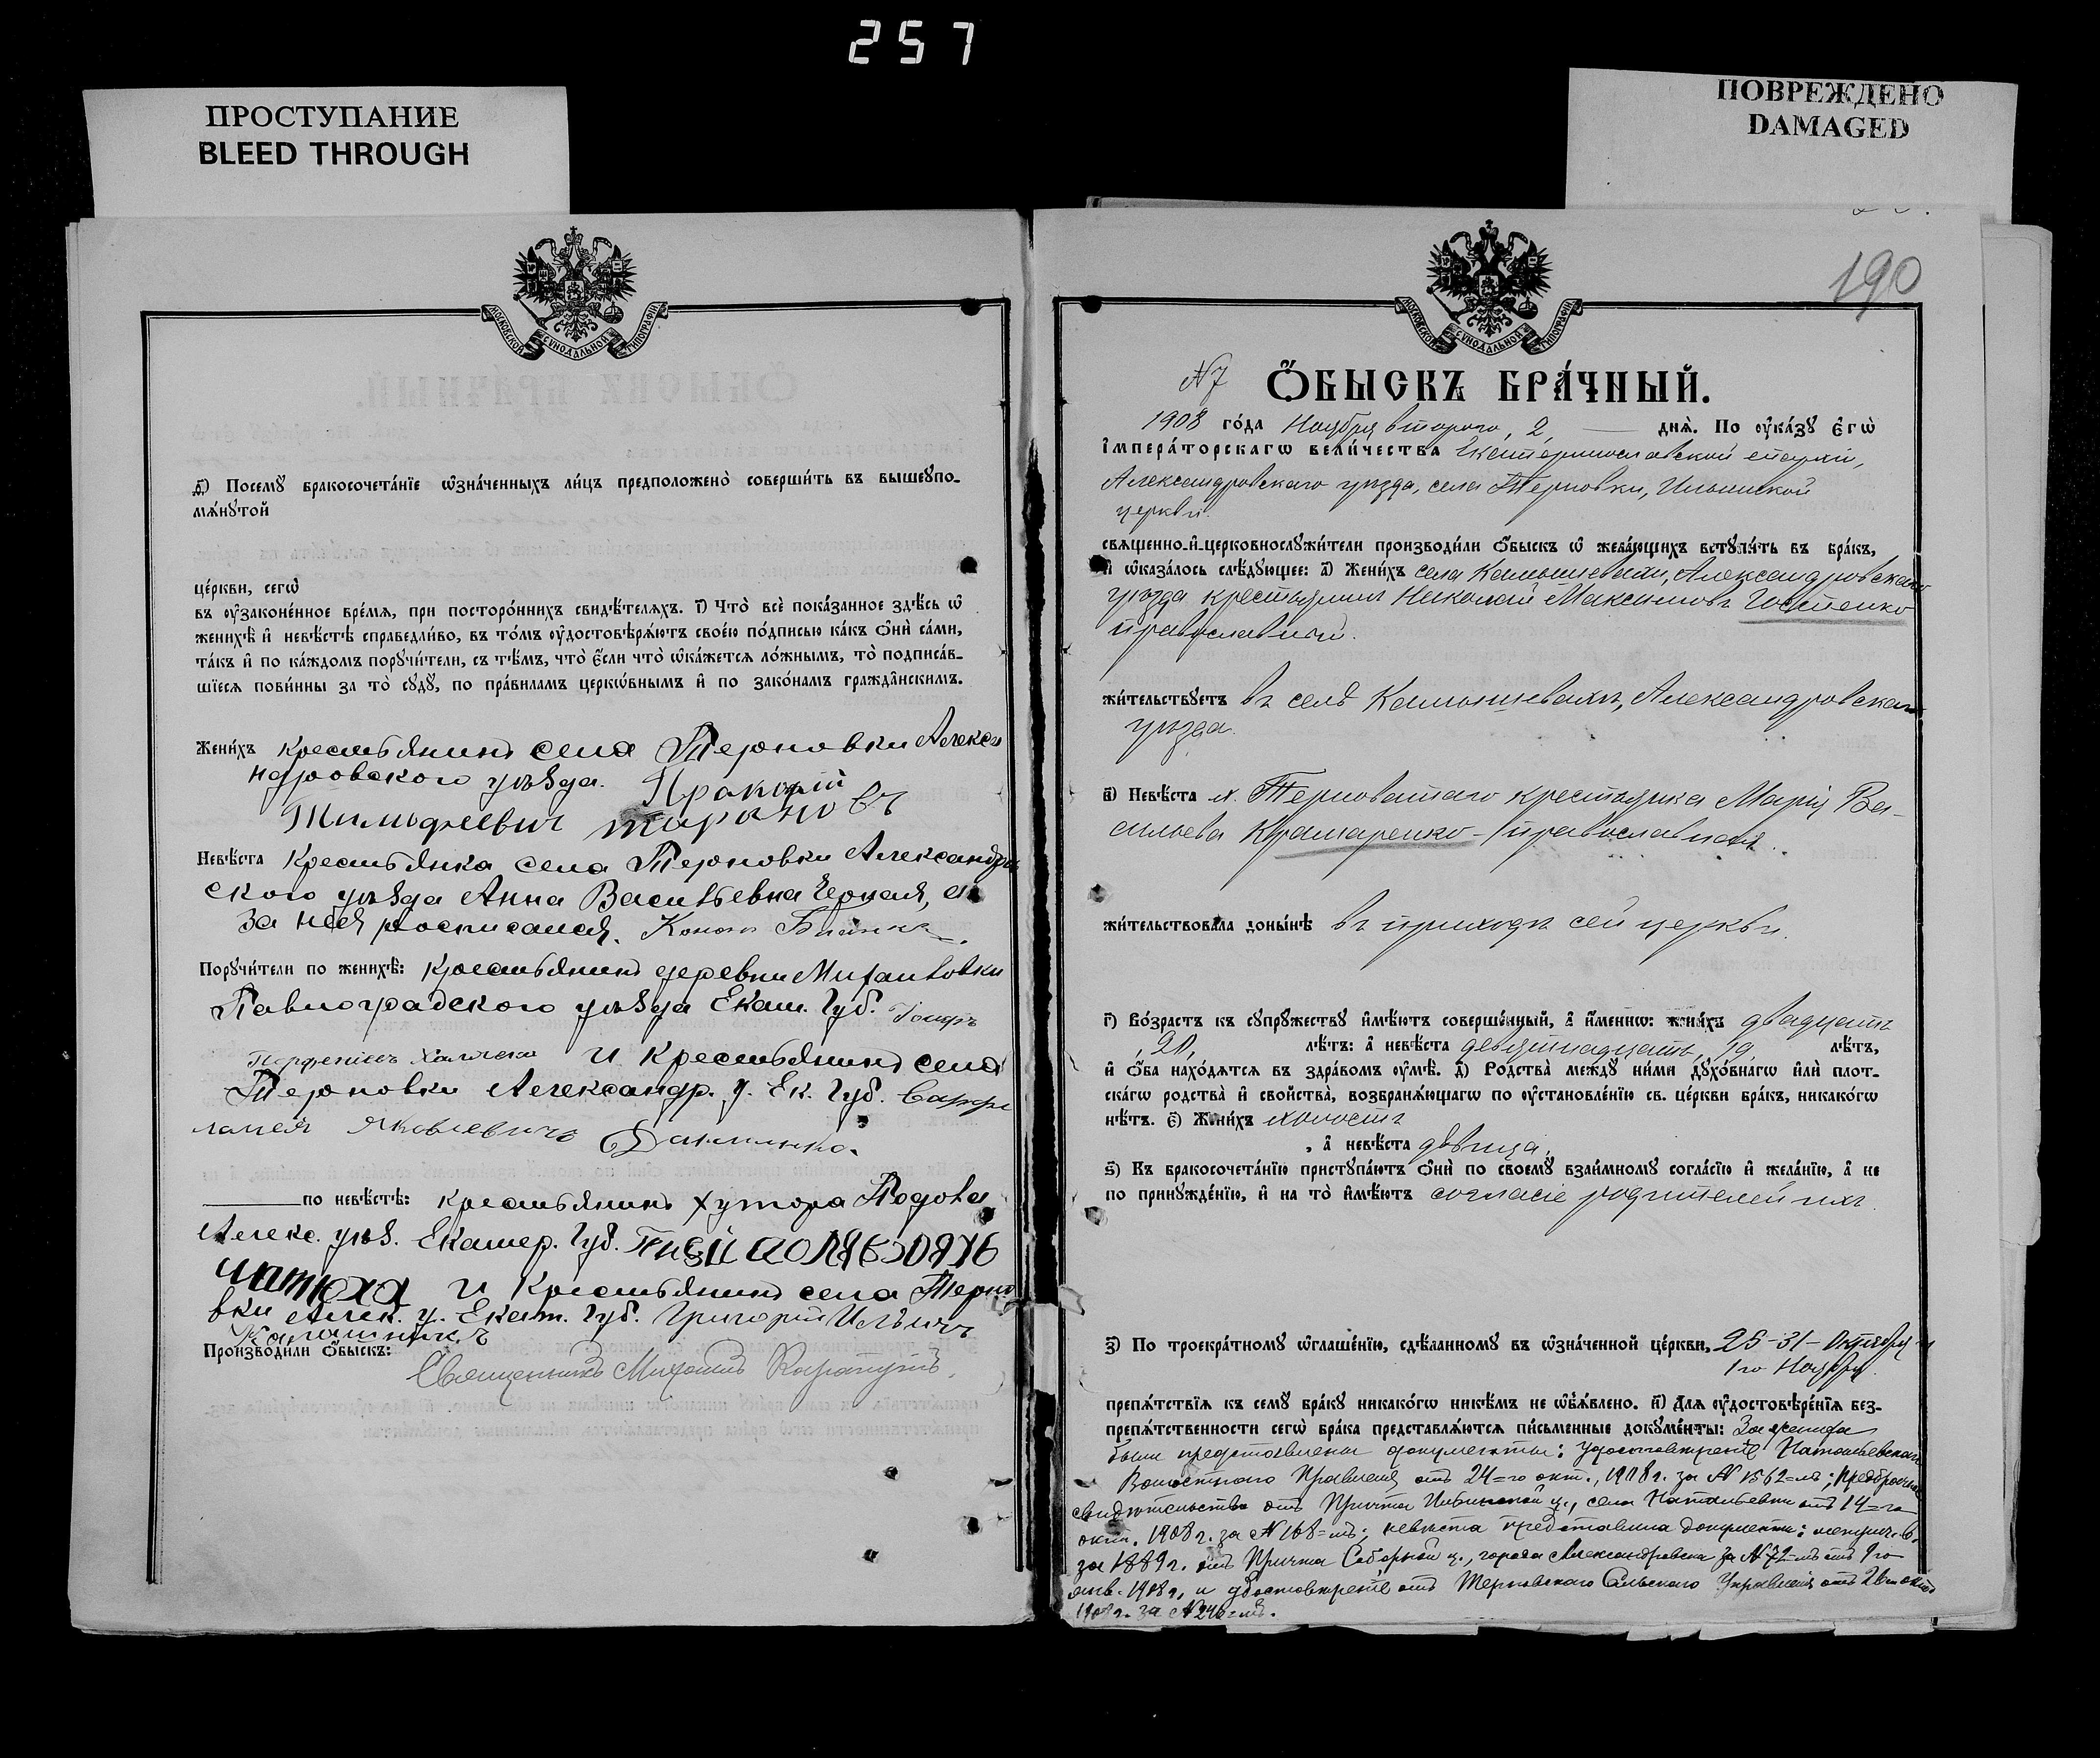 257
ПРОСТУПАНИЕ
BLEED THROUGH
ПОВРЕЖДЕНО
DAMAGED
МОСКОВСКОЙ СѴНОДАЛЬНОЙ ТИПОГРАФІИ
д҃і) Посемꙋ̀ бракосочета́нїе ѡ҆зна́ченныхъ ли́цъ предположено̀ соверши́ть въ вышеꙋпо-
мѧ́нꙋтой
це́ркви, сегѡ̀
въ ᲂу҆зако́ненное вре́мѧ, при посторо́ннихъ свидѣ́телѧхъ. і҃) Что̀ всѐ пока́занное здѣ́сь ѡ҆
женихѣ̀ и҆ невѣ́стѣ справедли́во, въ то́мъ ᲂу҆достовѣрѧ́ютъ свое́ю по́дписью ка́къ ѻ҆нѝ са́ми,
та́къ и҆ по ка́ждомъ порꙋчи́тели, съ тѣ́мъ, что̀ є҆́сли что̀ ѡ҆ка́жетсѧ ло́жнымъ, то̀ подписа́в-
шїесѧ пови́нны за то̀ сꙋдꙋ̀, по пра́виламъ церкѡ́внымъ и҆ по зако́намъ гражда́нскимъ.
Жени́хъ крестьянинъ села Терновки Алекса
ндровского уѣзда. Пракофій
Тимофеевич тарановъ
Невѣ́ста крестьянка села Терновки Александров
ского уѣзда Анна Васильевна Черная, а
за нея росписался. Конон
Порꙋчи́тели по женихѣ̀: крестьянинъ деревни Михайловки
Павлоградского уѣзда Екат. Губ.
и крестьянинъ села
Терновки Александр. у. Ек. Губ. Варфо
ламей Яковлевичъ Даниленко.
по невѣ́стѣ: крестьянинъ хутора
Алекс. уѣз. Екатер. Губ.
и крестьянинъ села Терно
вки Алек. у. Екат. Губ. Григорій Ильичъ
Произво́дили ѻ҆́быскъ:
Священникъ Михаилъ
190
N 7 Ѻ҆́БЫСКЪ БРА́ЧНЫЙ.
1908 го́да Ноября второго, 2, днѧ̀. По ᲂу҆ка́зꙋ є҆гѡ̀
і҆мпера́торскагѡ вели́чества Екатеринославской епархіи,
Александровскаго уѣзда, села Терновки, Ильинской
церкви.
свѧщенно-и҆-церковнослꙋжи́тели производи́ли ѻ҆́быскъ ѡ҆ жела́ющихъ встꙋпи́ть въ бра́къ,
и҆ ѡ҆каза́лось слѣ́дꙋющее: а҃) Жени́хъ села Камышевахи, Александровскаго
уѣзда крестьянинъ Николай Максимовъ Гостенко
православный.
жи́тельствꙋетъ въ селѣ Камышевахѣ, Александровскаго
уѣзда.
в҃) Невѣ́ста х. Терноватаго крестьянка Марія Ва-
сильева Крамаренко - православная.
жи́тельствовала доны́нѣ въ приходѣ сей церкви.
г҃) Во́зрастъ къ сꙋпрꙋ́жествꙋ и҆мѣ́ютъ соверше́нный, а҆ и҆́меннѡ: жени́хъ двадцать
, 20, лѣ́тъ: а҆ невѣ́ста девятнадцать, 19, лѣ́тъ,
и҆ ѻ҆́ба нахо́дѧтсѧ въ здра́вомъ ᲂу҆мѣ̀. д҃) Родства̀ междꙋ̀ ни́ми дꙋхо́внагѡ и҆лѝ плот-
ска́гѡ родства̀ и҆ свойства̀, возбранѧ́ющагѡ по ᲂу҆становле́нїю св. це́ркви бра́къ, никако́гѡ
нѣ́тъ. є҃) Жени́хъ холостъ
, а҆ невѣ́ста дѣвица.
ѕ҃) Къ бракосочета́нїю пристꙋпа́ютъ ѻ҆нѝ по своемꙋ̀ взаи́мномꙋ согла́сїю и҆ жела́нїю, а҆ не
по принꙋжде́нїю, и҆ на то̀ и҆мѣ́ютъ согласіе родителей ихъ.
з҃) По троекра́тномꙋ ѡ҆глаше́нїю, сдѣ́ланномꙋ въ ѡ҆зна́ченной це́ркви, 25-31-Октября и
1го Ноября
препѧ́тствїѧ къ семꙋ̀ бра́кꙋ никако́гѡ никѣ́мъ не ѡ҆б̾ѧ́влено. и҃) Длѧ ᲂу҆достовѣре́нїѧ без-
препѧ́тственности сегѡ̀ бра́ка представлѧ́ютсѧ пи́сьменные докꙋме́нты: За жениха
были представлены документы: удостовѣреніе Натальевскаго
Волостного Правленія отъ 24=го окт., 1908 г. за N 1562=мъ; предбрачное
свидѣтельство отъ Причта Ильинской ц., села Натальевки отъ 14=го
окт. 1908 г. за N 168=мъ; невѣста представила документы: метрич. в.
за 1889 г. отъ Причта Соборной ц., города Александровска за N 72=мъ отъ 9го
янв. 1908 г, и удостовѣреніе отъ Терновского Сельского Управленія отъ 26го окт
1908 г. за N 246=мъ.